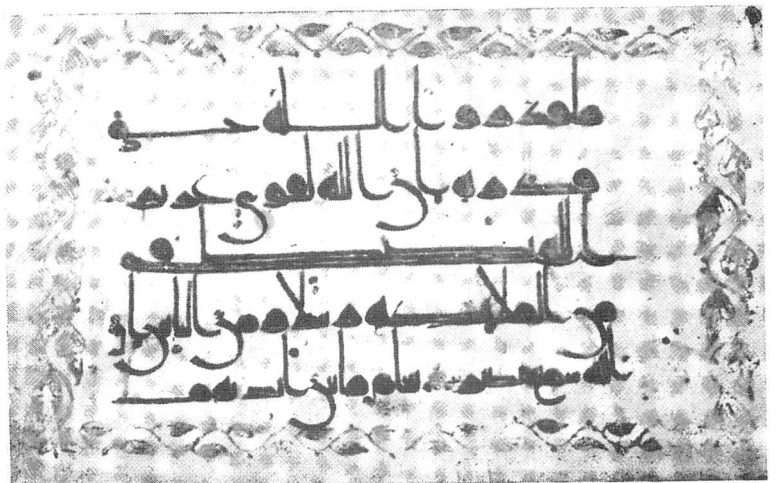 ما قدروا الله حق
قدره ان الله لقوي عزيز
الله يصطفي
من الملئكة رسلا ومن الناس ا
ن الله سميع بصير يعلم ما بين ايديهم